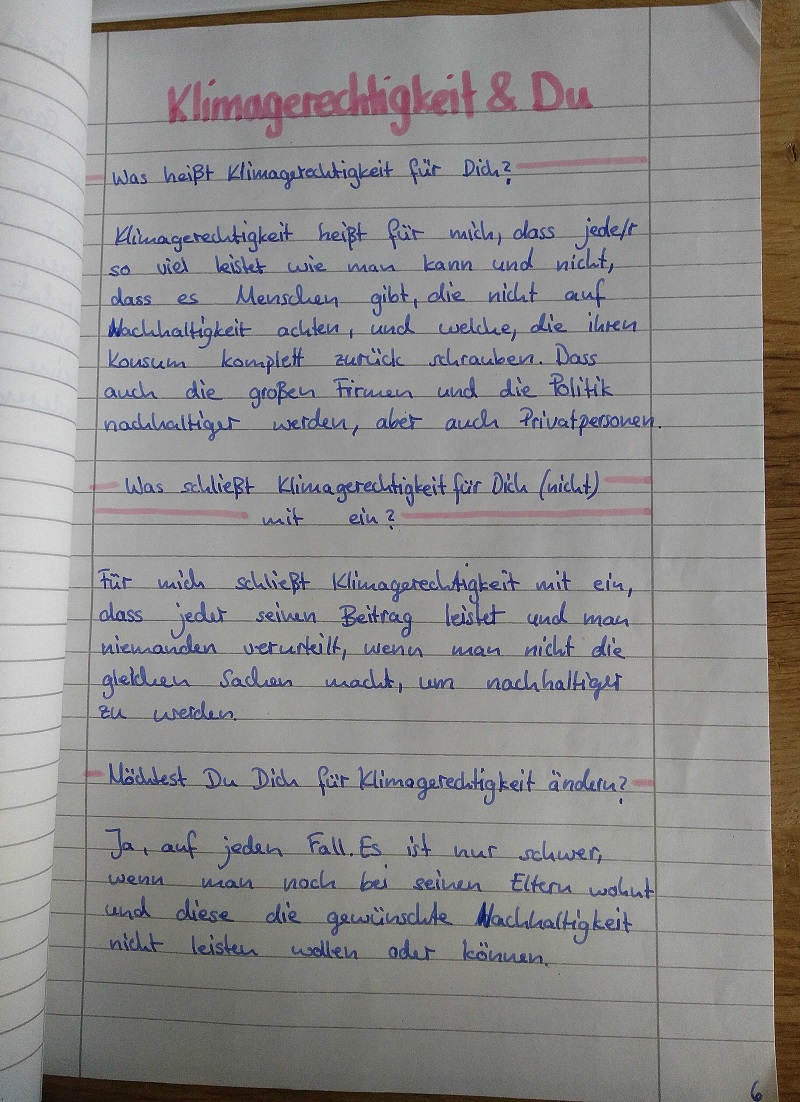 Klimagerechtigkeit & Du
Was heißt Klimagerechtigkeit für Dich?
Klimagerechtigkeit heißt für mich, dass jede/r
so viel leistet wie man kann und nicht,
dass es Menschen gibt, die nicht auf
Nachhaltigkeit achten, und welche, die ihren
Konsum komplett zurück schrauben. Dass
auch die großen Firmen und die Politik
nachhaltiger werden, aber auch Privatpersonen.
Was schließt Klimagerechtigkeit für Dich (nicht)
mit ein?
Für mich schließt Klimagerechtigkeit mit ein,
dass jeder seinen Beitrag leistet und man
niemanden verurteilt, wenn man nicht die
gleichen Sachen macht, um nachhaltiger
zu werden.
Möchtest Du Dich für Klimagerechtigkeit ändern?
Ja, auf jeden Fall. Es ist nur schwer,
wenn man noch bei seinen Eltern wohnt
und diese die gewünschte Nachhaltigkeit
nicht leisten wollen oder können.
6